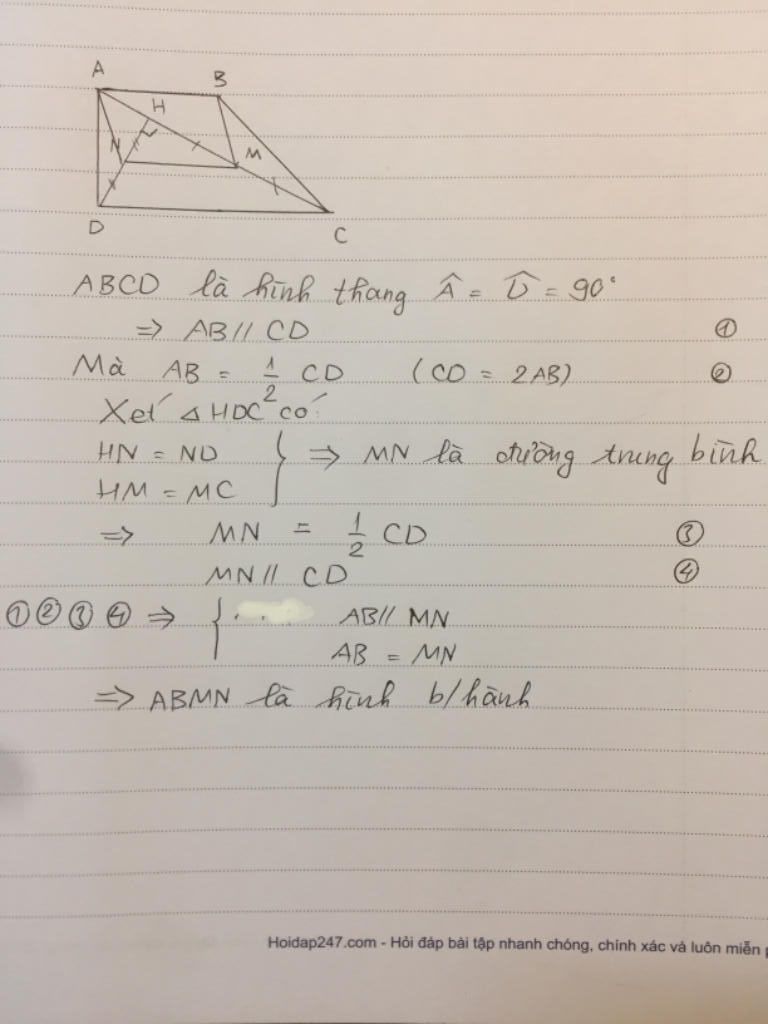 A
B
H
N
M
D
C
ABCD là hình thang Â = D̂ = 90°
=> AB // CD ①
Mà AB = 1/2 CD (CD = 2AB) ②
Xét △ HDC có
HN = ND } => MN là đường trung bình
HM = MC
=> MN = 1/2 CD ③
MN // CD ④
① ② ③ ④ => { AB // MN
AB = MN
=> ABMN là hình b/hành
Hoidap247.com - Hỏi đáp bài tập nhanh chóng, chính xác và luôn miễn p